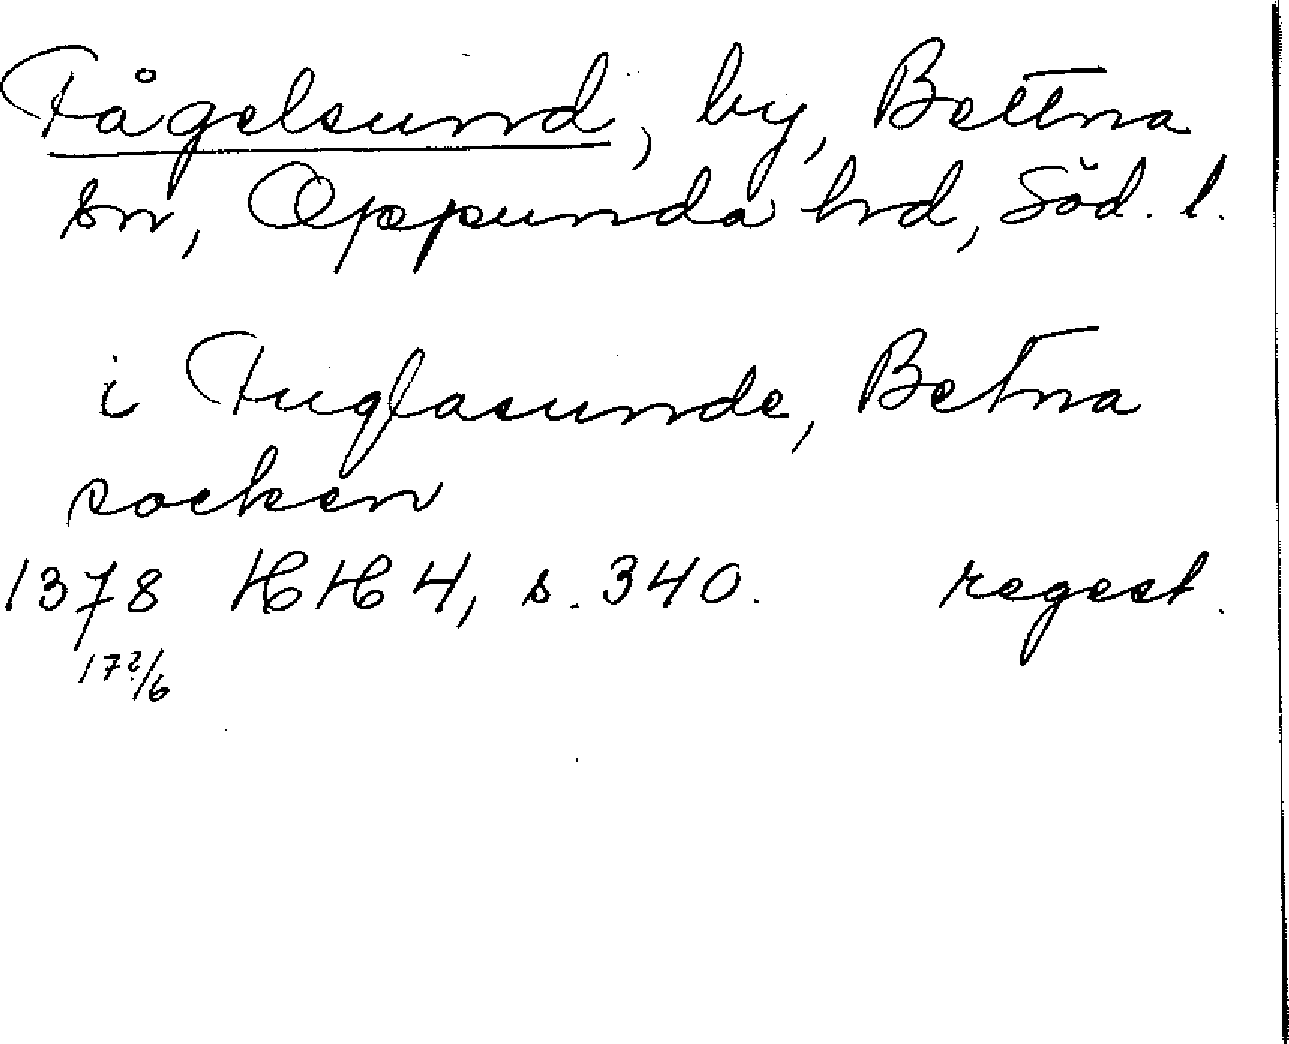 Fågelsund, by, Bettna
sn, Oppunda hrd, Söd. l.
i Fuglasunde, Betna
socken
1378 HH 4, s. 340. regest.
17?/6